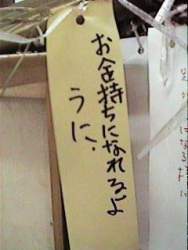 お金持ちになれるよ
うに！